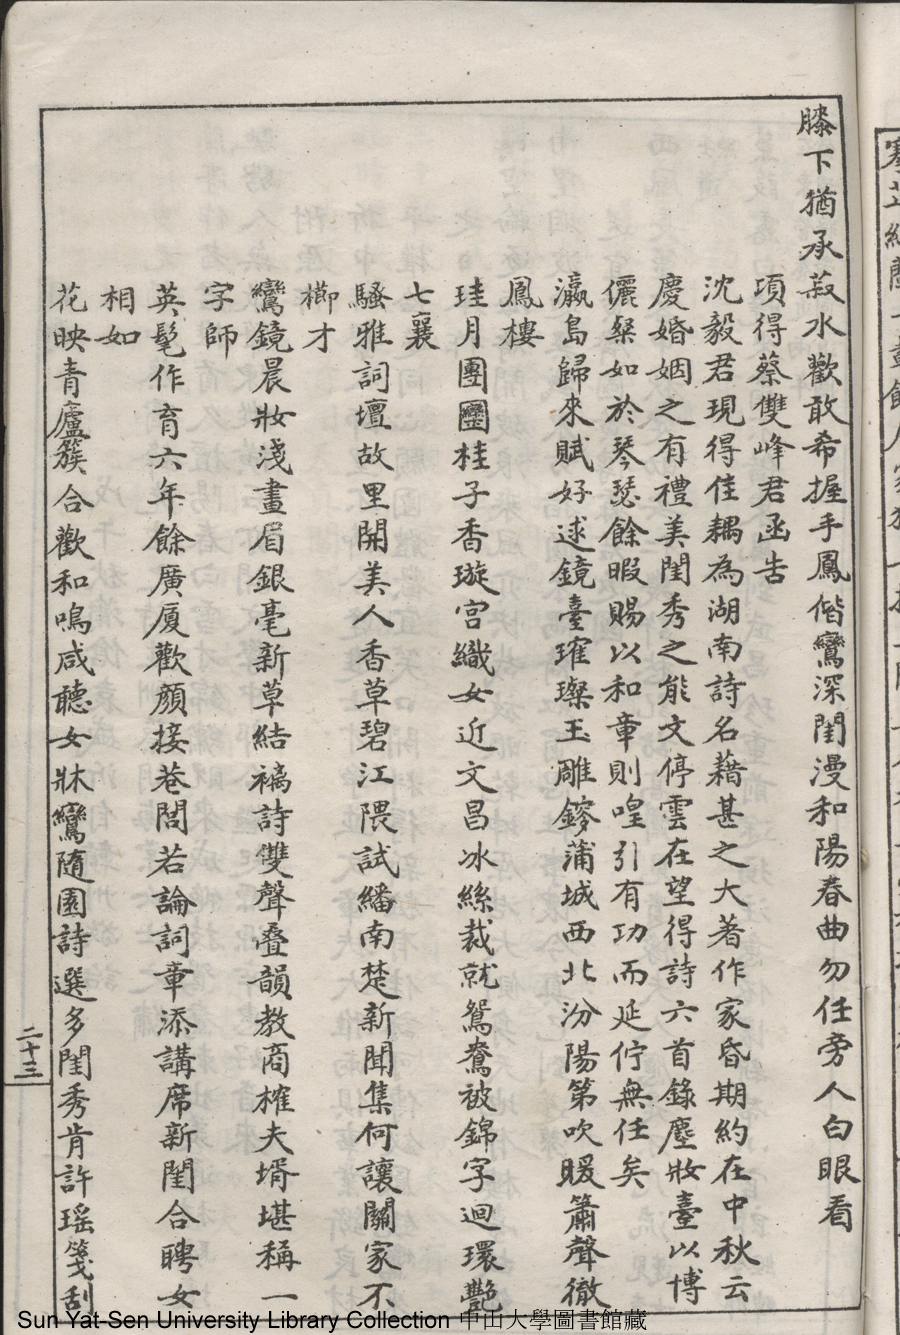 膝下猶承菽水歡敢希握手鳳偕鸞深閨漫和陽春曲勿任旁人白眼看
項得蔡雙峰君函告
沈毅君現得佳耦為湖南詩名藉甚之大著作家昏期約在中秋云
慶婚姻之有禮美閨秀之能文停雲在望得詩六首錄塵妝臺以博
儷粲如於琴瑟餘暇賜以和章則喤引有功而延佇無任矣
瀛島歸來賦好逑鏡臺璀璨玉雕鎪蒲城西北汾陽第吹暖簫聲徹
鳳樓
珪月團圞桂子香璇宮織女近文昌冰絲裁就鴛鴦被錦字迴環艷
七襄
騷雅詞壇故里開美人香草碧江隈試繙南楚新聞集何讓關家不
櫛才
鸞鏡晨妝淺畫眉銀毫新草結褵詩雙聲叠韻教商榷夫壻堪稱一
字師
英髦作育六年餘廣廈歡顏接巷閭若論詞章添講席新閨合聘女
相如
花映青廬簇合歡和鳴咸聽女牀鸞隨園詩選多閨秀肯許瑤箋刮
二十三
Sun Yat-Sen University Library Collection 中山大學圖書館藏